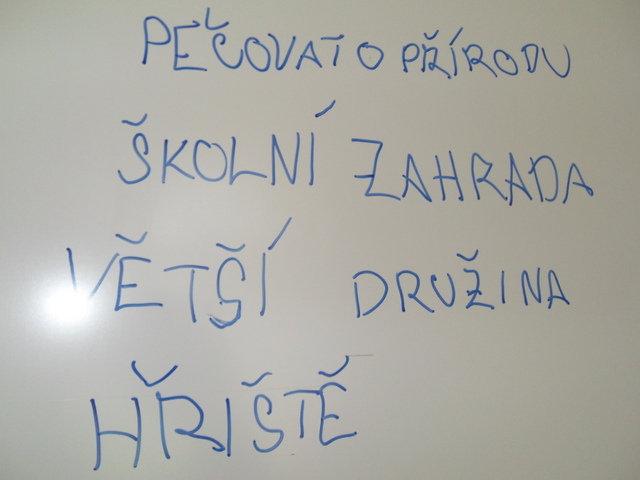 PEČOVAT O PŘÍRODU
ŠKOLNÍ ZAHRADA
VĚTŠÍ DRUŽINA
HŘIŠTĚ